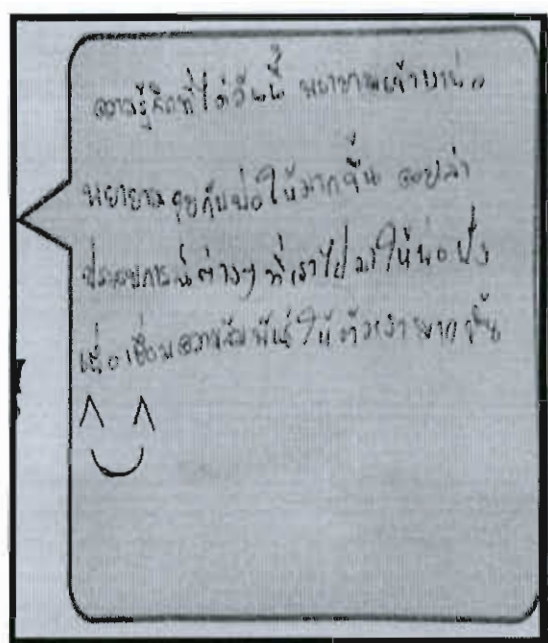 ความรู้สึกที่ได้วันนี้ พยายามเข้าหาพ่อ
พยายามคุยกับพ่อให้มากขึ้น คอยเล่า
ประสบการณ์ต่างๆ ที่เราไปมาให้พ่อฟัง
เพื่อเชื่อมความสัมพันธ์ให้มากขึ้น